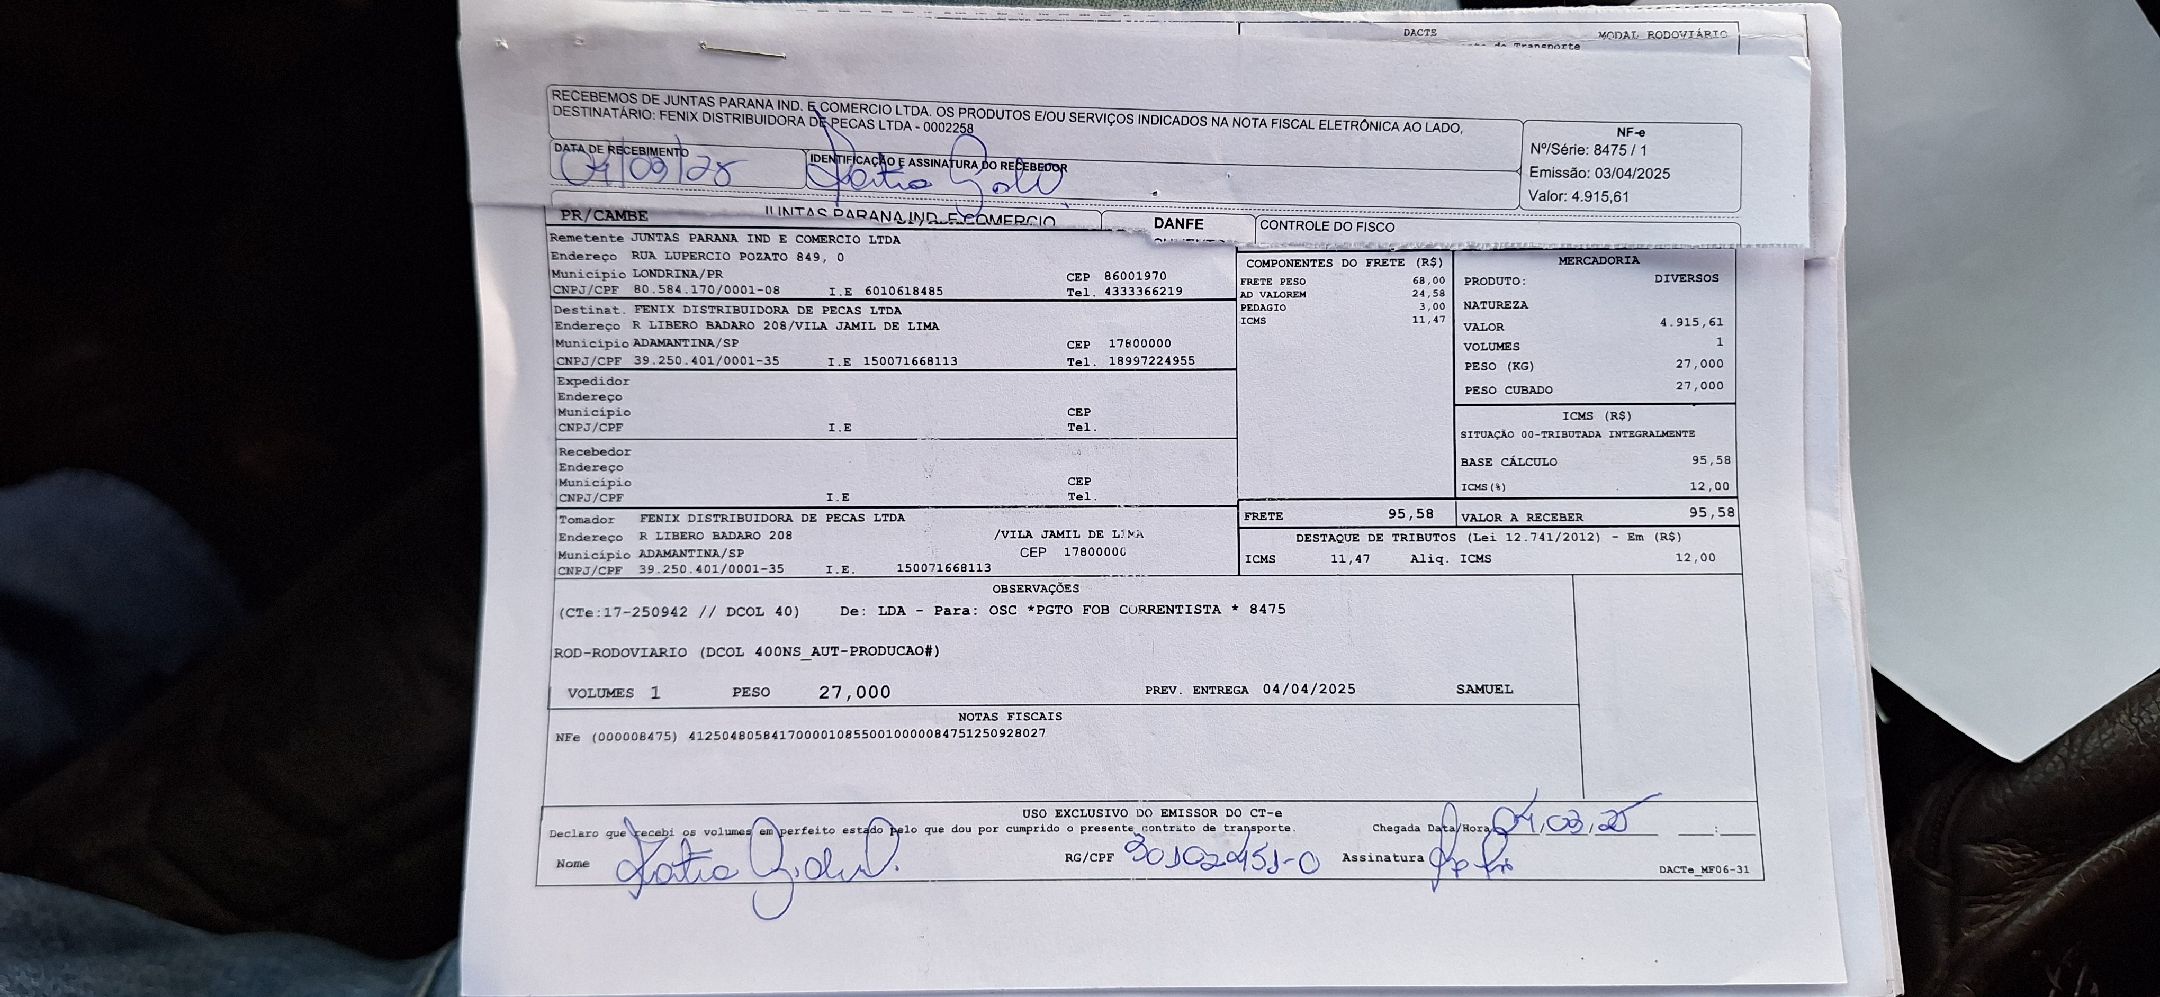 DACTE
MODAL RODOVIÁRIO
de Transporte
RECEBEMOS DE JUNTAS PARANA IND. E COMERCIO LTDA. OS PRODUTOS E/OU SERVIÇOS INDICADOS NA NOTA FISCAL ELETRÔNICA AO LADO,
DESTINATÁRIO: FENIX DISTRIBUIDORA DE PECAS LTDA - 0002258
DATA DE RECEBIMENTO
04/03/25
IDENTIFICAÇÃO E ASSINATURA DO RECEBEDOR
NF-e
Nº/Série: 8475 / 1
Emissão: 03/04/2025
Valor: 4.915,61
PR/CAMBE
JUNTAS PARANA IND. E COMERCIO
DANFE
CONTROLE DO FISCO
Remetente JUNTAS PARANA IND E COMERCIO LTDA
Endereço RUA LUPERCIO POZATO 849, 0
Município LONDRINA/PR CEP 86001970
CNPJ/CPF 80.584.170/0001-08 I.E 6010618485 Tel. 4333366219
Destinat. FENIX DISTRIBUIDORA DE PECAS LTDA
Endereço R LIBERO BADARO 208/VILA JAMIL DE LIMA
Município ADAMANTINA/SP CEP 17800000
CNPJ/CPF 39.250.401/0001-35 I.E 150071668113 Tel. 18997224955
Expedidor
Endereço
Município CEP
CNPJ/CPF I.E Tel.
Recebedor
Endereço
Município CEP
CNPJ/CPF I.E Tel.
Tomador FENIX DISTRIBUIDORA DE PECAS LTDA
Endereço R LIBERO BADARO 208 /VILA JAMIL DE LIMA
Município ADAMANTINA/SP CEP 17800000
CNPJ/CPF 39.250.401/0001-35 I.E. 150071668113
COMPONENTES DO FRETE (R$)
FRETE PESO 68,00
AD VALOREM 24,58
PEDAGIO 3,00
ICMS 11,47
FRETE 95,58
MERCADORIA
PRODUTO: DIVERSOS
NATUREZA
VALOR 4.915,61
VOLUMES 1
PESO (KG) 27,000
PESO CUBADO 27,000
ICMS (R$)
SITUAÇÃO 00-TRIBUTADA INTEGRALMENTE
BASE CÁLCULO 95,58
ICMS(%) 12,00
VALOR A RECEBER 95,58
DESTAQUE DE TRIBUTOS (Lei 12.741/2012) - Em (R$)
ICMS 11,47 Aliq. ICMS 12,00
OBSERVAÇÕES
(CTe:17-250942 // DCOL 40) De: LDA - Para: OSC *PGTO FOB CORRENTISTA * 8475
ROD-RODOVIARIO (DCOL 400NS_AUT-PRODUCAO#)
VOLUMES 1 PESO 27,000 PREV. ENTREGA 04/04/2025 SAMUEL
NOTAS FISCAIS
NFe (000008475) 41250480584170000108550010000084751250928027
USO EXCLUSIVO DO EMISSOR DO CT-e
Declaro que recebi os volumes em perfeito estado pelo que dou por cumprido o presente contrato de transporte. Chegada Data/Hora 04/03/25 __:__
Nome RG/CPF 30102451-0 Assinatura
DACTe_MF06-31